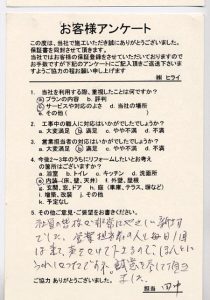 お客様アンケート
この度は、当社で施工いただき誠にありがとうございました。
保証書を同封させて頂きます。
当社ではお客様の保証登録をさせていただいておりますので
お手数ですが下記のアンケートにご記入頂きご返送下さいま
すようご協力の程お願い申し上げます
㈱ ヒライ
1. 当社を利用する際、重視したことは何ですか？
a.プランの内容 b.評判
c.サービスや対応のよさ d.当社の場所
e.その他（
2. 工事中の職人に対応はいかがでしたでしょうか。
a.大変満足 b.満足 c.やや不満 d.不満
3. 営業担当者の対応はいかがでしたでしょうか。
a.大変満足 b.満足 c.やや不満 d.不満
4. 今後2～3年のうちにリフォームしたいとお考え
の箇所はございますか。
a.浴室 b.トイレ c.キッチン d.洗面所
e.内装(床、壁、天井) f.外壁、屋根
g.玄関、窓、ドア h.庭（車庫、テラス、塀など）
i.増築、改築 j.その他
k.予定なし
5. その他ご意見・ご要望をお書きください。
社員の皆様が非常にていねいに
でした。営業担当者の人も毎日1回
は来て
ました。
ご協力ありがとうございました。
担当 田中